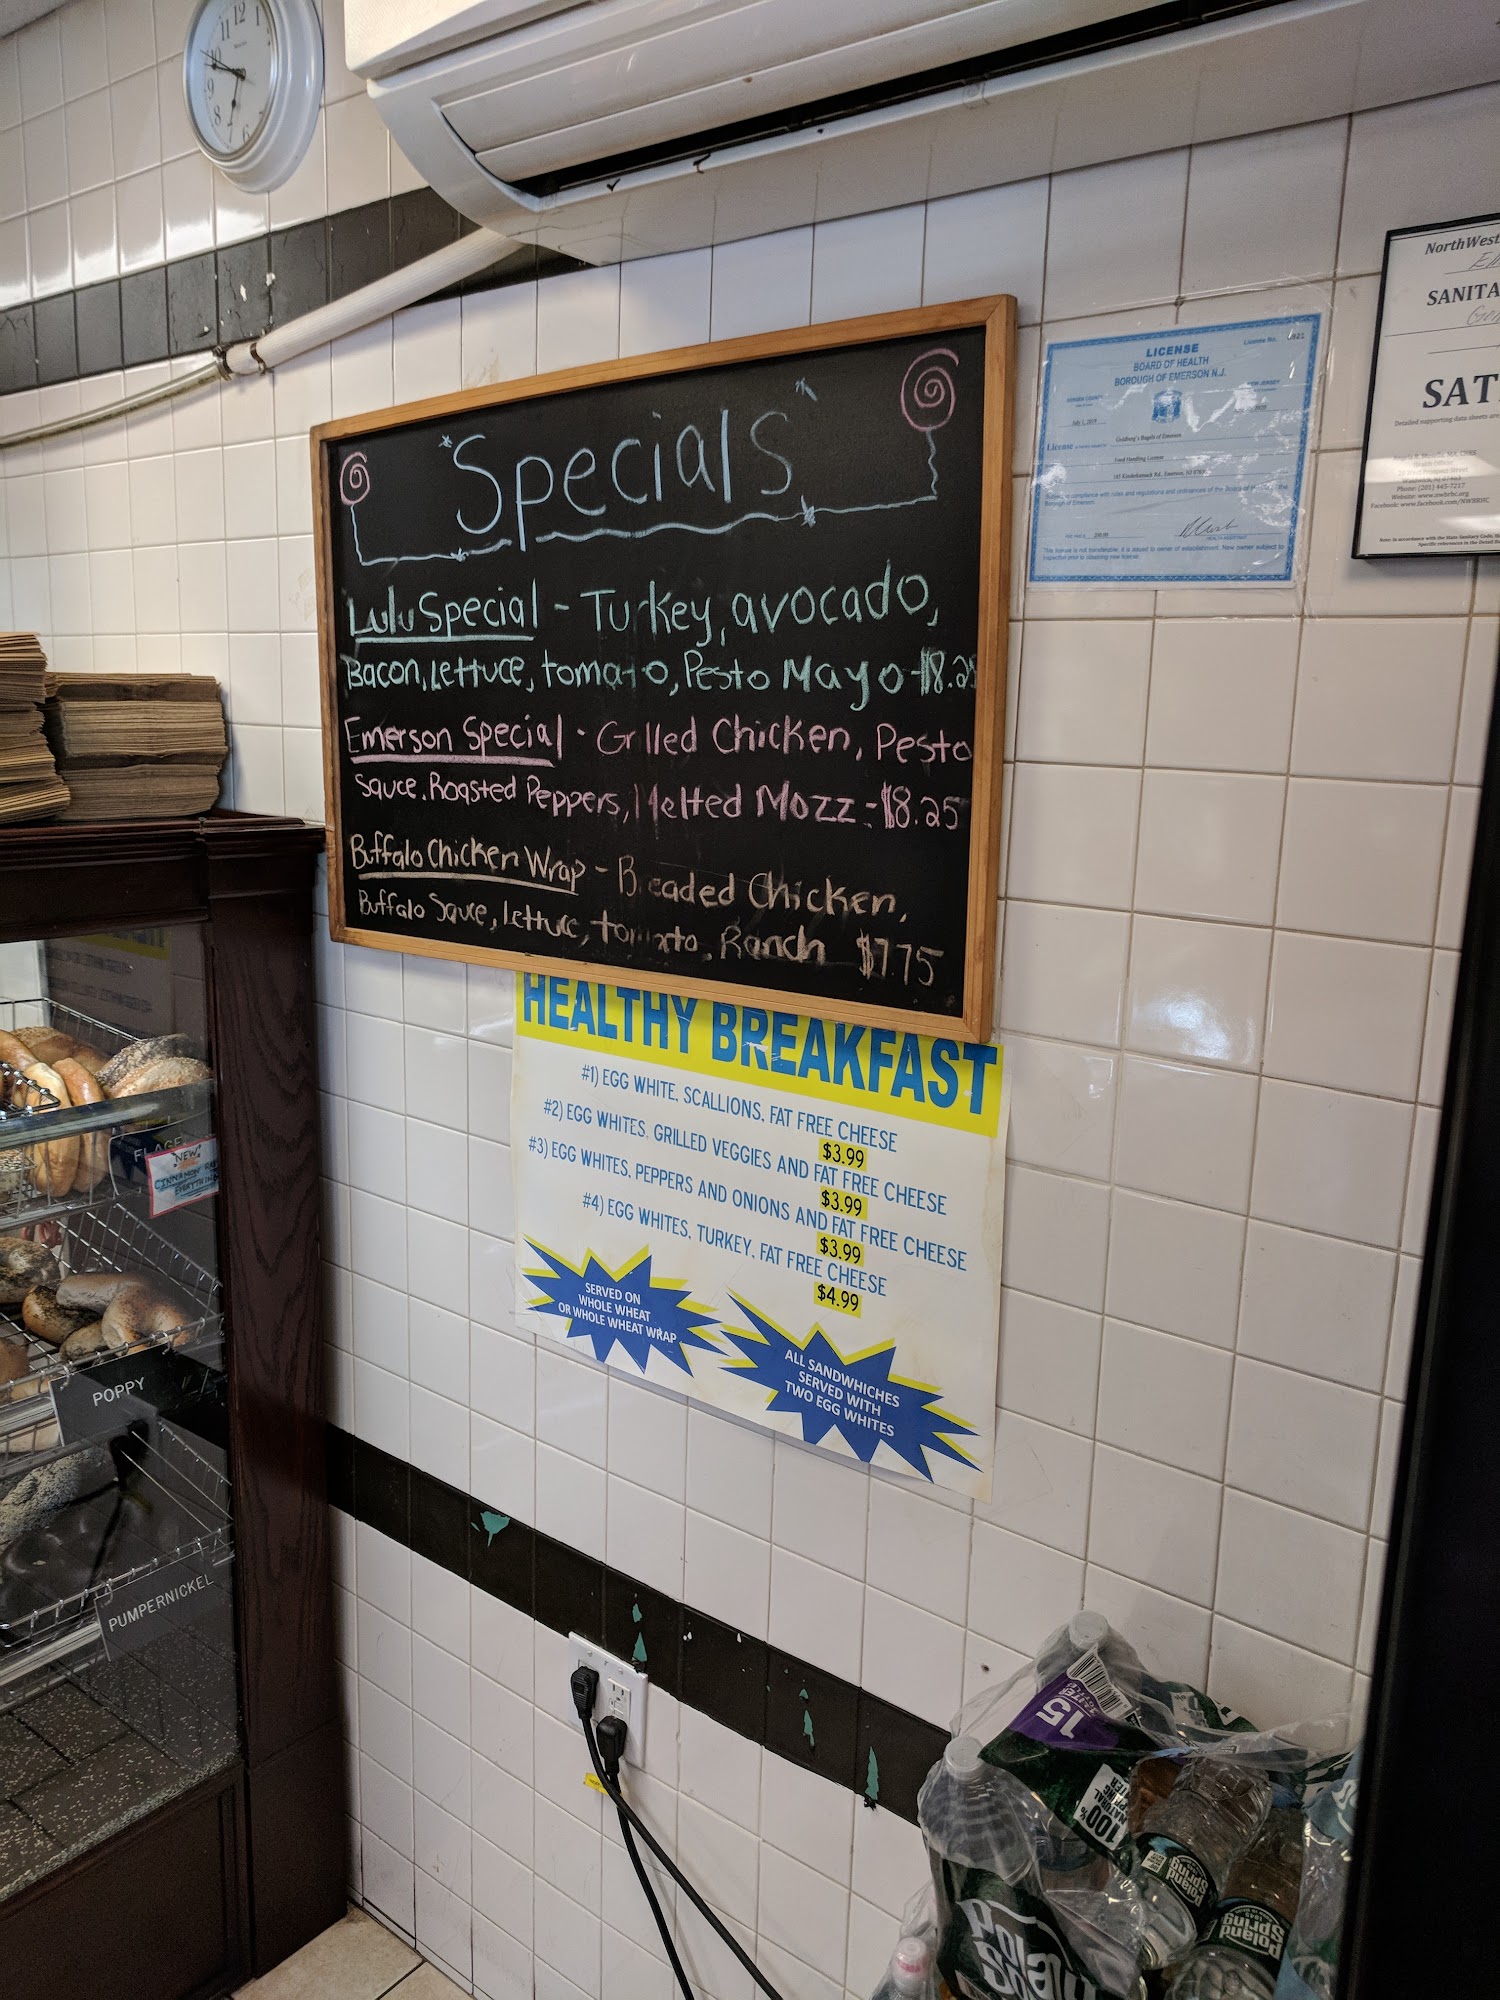 11 12 1
10
9
8
7
6
*Specials*
Lulu Special - Turkey, avocado,
Bacon, Lettuce, tomato, Pesto Mayo - $8.25
Emerson Special - Grilled Chicken, Pesto
Sauce, Roasted Peppers, Melted Mozz - $8.25
Buffalo Chicken Wrap - Breaded Chicken,
Buffalo Sauce, Lettuce, tomato, Ranch $7.75
HEALTHY BREAKFAST
#1) EGG WHITE, SCALLIONS, FAT FREE CHEESE
$3.99
#2) EGG WHITES, GRILLED VEGGIES AND FAT FREE CHEESE
$3.99
#3) EGG WHITES, PEPPERS AND ONIONS AND FAT FREE CHEESE
$3.99
#4) EGG WHITES, TURKEY, FAT FREE CHEESE
$4.99
SERVED ON
WHOLE WHEAT
OR WHOLE WHEAT WRAP
ALL SANDWHICHES
SERVED WITH
TWO EGG WHITES
License No.
LICENSE
BOARD OF HEALTH
BOROUGH OF EMERSON N.J.
July 1, 2019
License
Goldberg's Bagels of Emerson
Food Handling License
Kinderkamack Rd., Emerson, NJ
Borough of Emerson
This license is not transferable, it is issued to owner of establishment. New owner subject to
inspection prior to obtaining new license.
NorthWest
SANITA
SAT
Detailed supporting data sheets are
Phone: (201) 445-7217
Website: www.nwbrhc.org
Facebook: www.facebook.com/NWBRHC
FLAGE
NEW
CINNAMON
EVERYTHING
POPPY
PUMPERNICKEL
15
100%
NATURAL
Poland
Spring
Poland
Spring
Poland